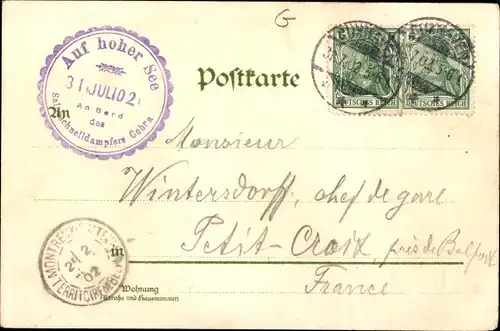 G
Auf hoher See
31 JULI 02
An Bord
des
Salonschnelldampfers Cobra
DEUTSCHES REICH
DEUTSCHES REICH
Postkarte
An
Monsieur
Wintersdorff, chef de gare
in Petit-Croix, près de Belfort
France
Wohnung
(Straße und Hausnummer)
02